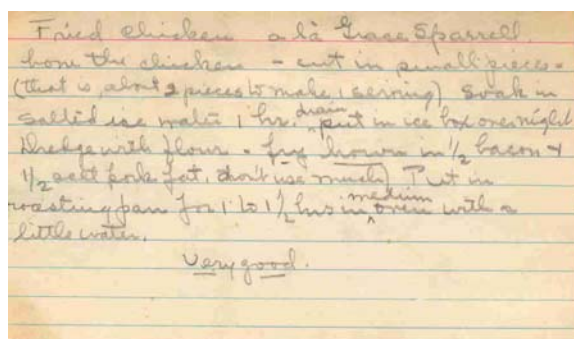 Fried chicken a là Grace Sparrell.
bone the chicken - cut in small pieces -
(that is, about 2 pieces to make 1 serving) Soak in
salted ice water 1 hr. drain put in ice box overnight
Dredge with flour - fry brown in 1/2 bacon +
1/2 salt pork fat, (don't use much) Put in
roasting pan for 1 to 1 1/2 hrs in medium oven with a
little water.
Very good.